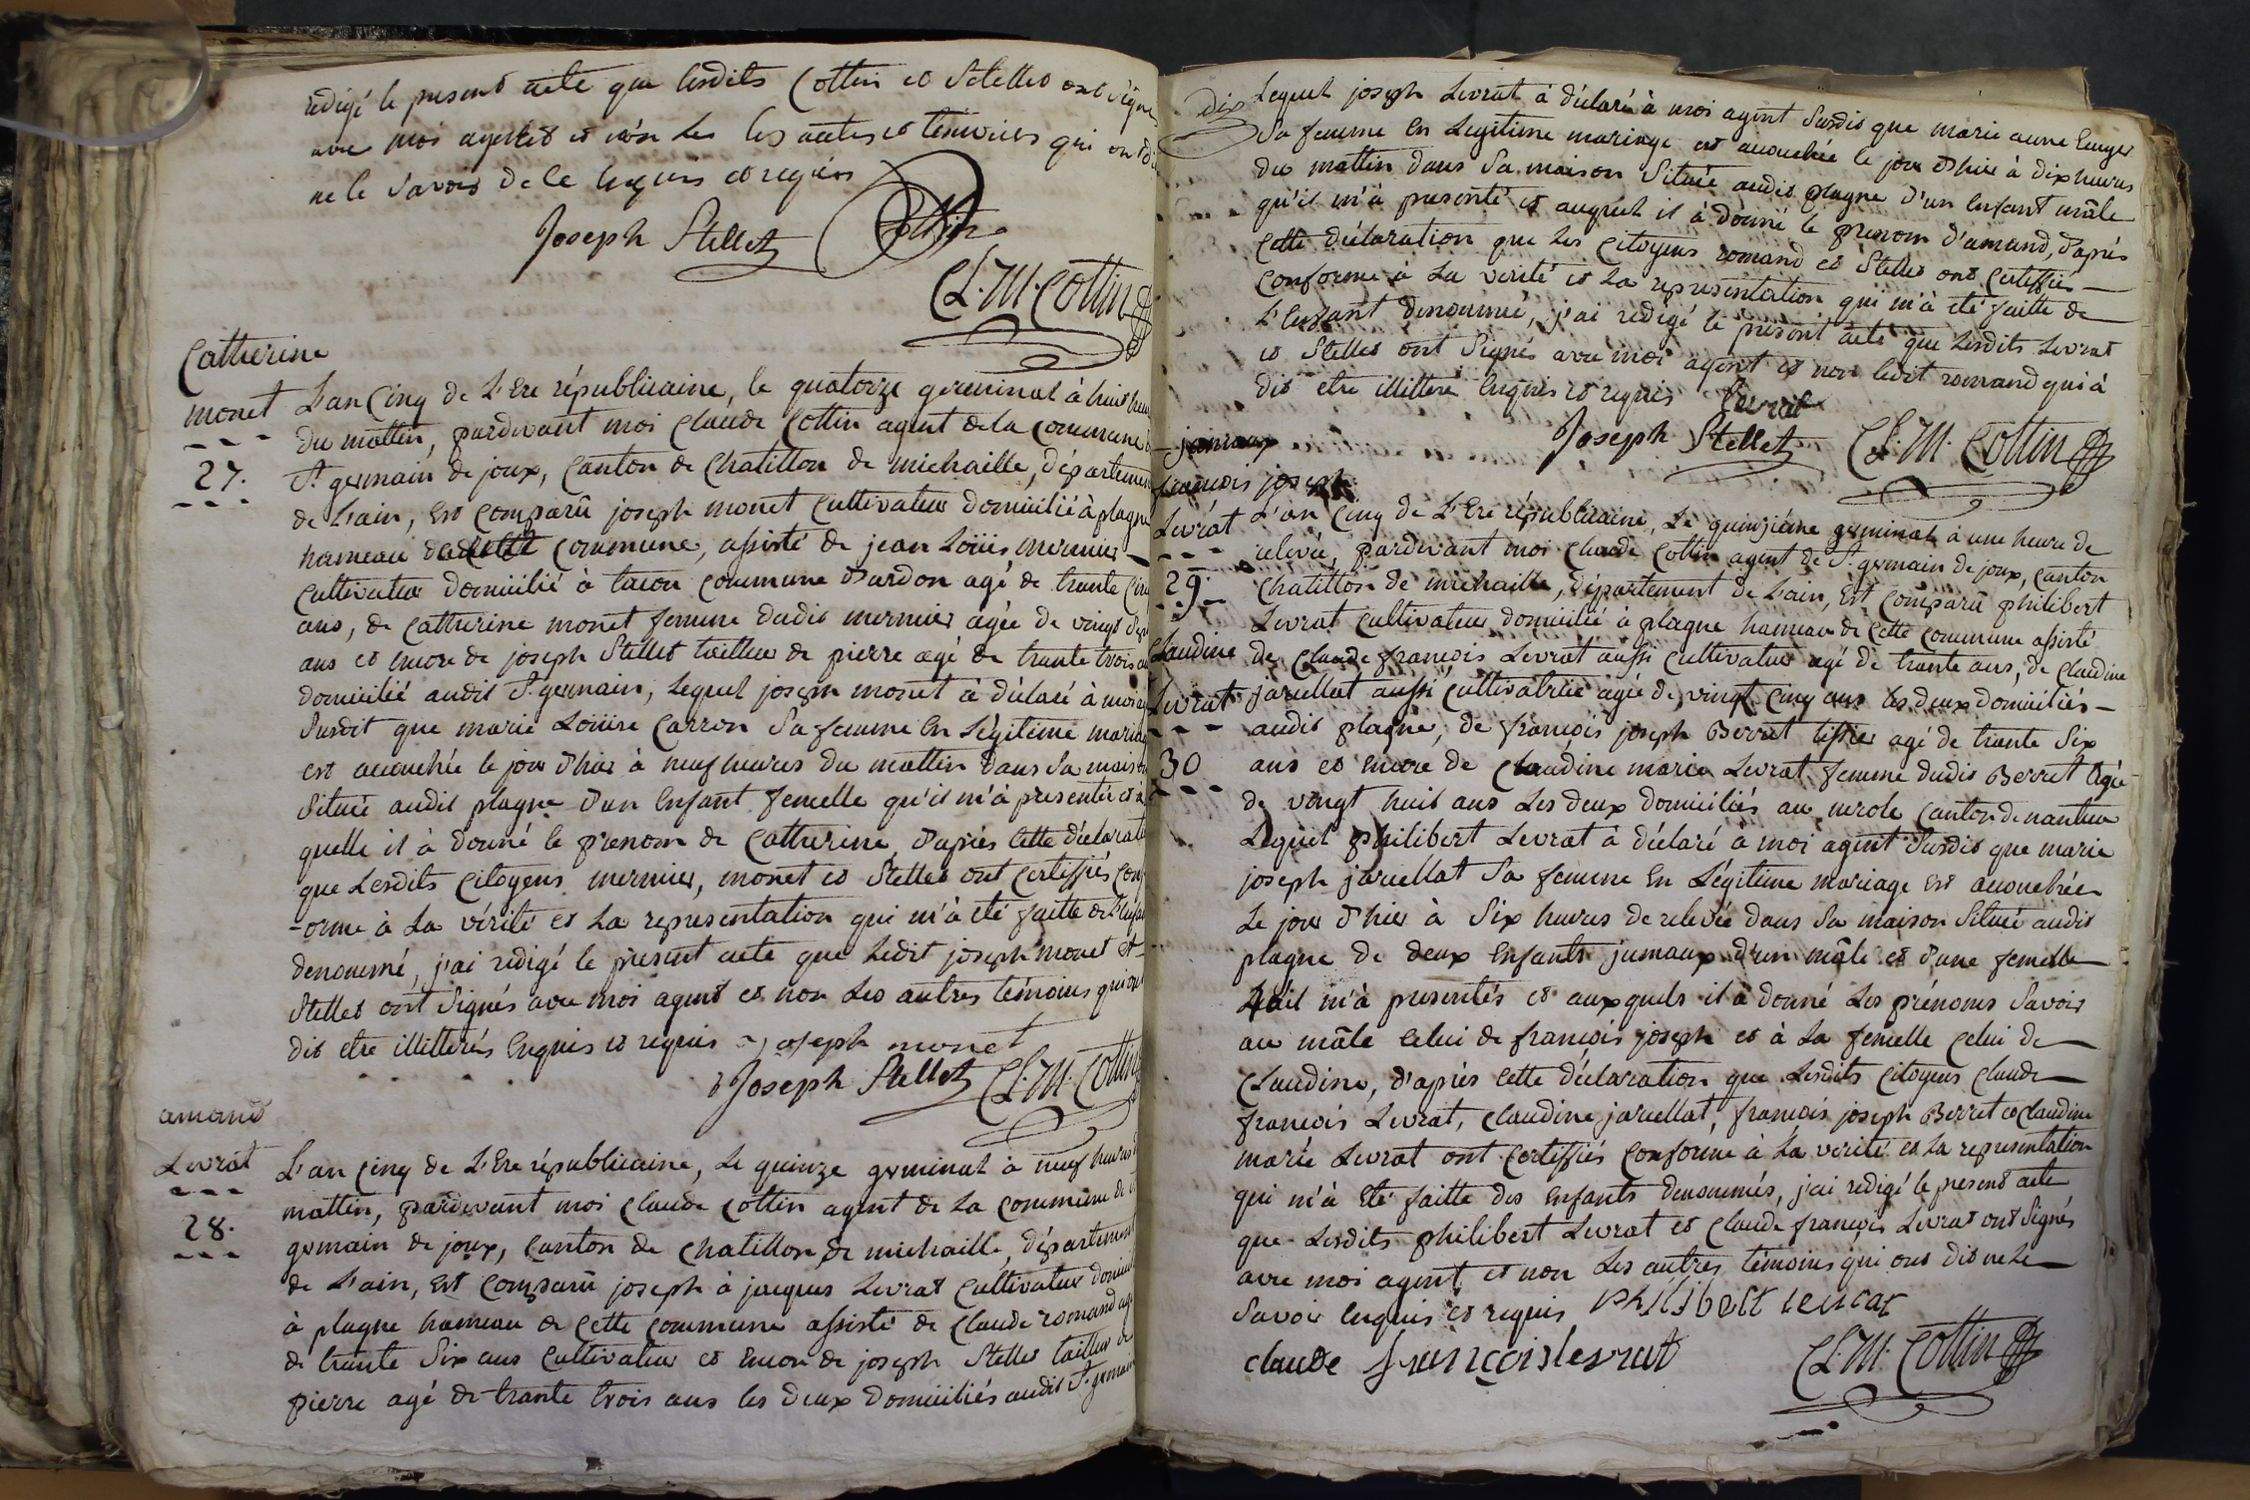 rédigé le present acte que lesdits Cottin et Stellet ont signé
avec moi agent et non les autres témoins qui ont dit
ne le savoir de ce enquis et requis
Joseph Stellet Cottin
Cl. M. Cottin
Catherine
monet
27.
L'an Cinq de L'Ere républicaine, le quatorze germinal à huit heures
du mattin, pardevant moi Claude Cottin agent de la Commune de
St. germain de joux, Canton de Chatillon de michaille, départemen
de L'ain, Est Comparû joseph monet Cultivateur domicilié à plagne
hameau de cette Commune, assisté de jean Loüis mermier
Cultivateur domicilié à tacon Commune d'ardon agé de trente Cinq
ans, de Catherine monet femme dudit mermier agée de vingt sept
ans et encore de joseph Stellet tailleur de pierre agé de trente trois ans
domicilié audit St. germain, Lequel joseph monet à déclaré à moi ag
Susdit que marie Loüise Carron Sa femme En Légitime mariag
est accouchée le jour d'hier à neuf heures du mattin dans Sa maison
Située audit plagne d'un Enfant femelle qu'il m'à presentée et a
quelle il à donné le prenom de Catherine, d'après Cette déclaratio
que Lesdits Citoyens mermier, monet et Stellet ont Certiffiés Conf
-orme à La vérité et La representation qui m'à eté faitte de L'enfa
denommé, j'ai rédigé le présent acte que Ledit joseph monet et
Stellet ont Signés avec moi agent et non Les autres témoins qui ont
dit etre illitterés Enquis et requis joseph monet
Joseph Stellet Cl. M. Cottin
amand
Levrat
28.
L'an Cinq de L'Ere républicaine, Le quinze germinal à neuf heures d
mattin, pardevant moi Claude Cottin agent de La Commune de St
germain de joux, Canton de Chatillon de michaille, département
de L'ain, Est Comparû joseph à jacques Levrat Cultivateur domicili
à plagne hameau de Cette Commune assisté de Claude romand agé
de trente Six ans Cultivateur et Encore de joseph Stellet tailleur de
pierre agé de trente trois ans les deux domiciliés audit St. germain
dix
Lequel joseph Levrat à déclaré à moi agent Susdit que marie anne
Sa femme En Legitime mariage est accouchée le jour d'hier à dix heures
du mattin dans Sa maison Située audit plagne d'un Enfant mâle
qu'il m'à presenté et auquel il à donné le prenom d'amand, d'après
Cette déclaration que Les Citoyens romand et Stellet ont Certiffiés
Conforme à La verité et La representation qui m'à eté faitte de
L'Enfant denommé, j'ai rédigé le présent acte que Lesdits Levrat
et Stellet ont Signés avec moi agent et non ledit romand qui à
dit etre illitteré Enquis et requis Levrat
Joseph Stellet Cl. M. Cottin
jumeaux
francois joseph
Levrat
29.
Claudine
Levrat
30
L'an Cinq de L'Ere républicaine, Le quinzième germinal à une heure de
relevée, pardevant moi Claude Cottin agent de St. germain de joux, Canton
Chatillon de michaille, département de L'ain, Est Comparû philibert
Levrat Cultivateur domicilié à plagne hameau de Cette Commune assisté
de Claude françois Levrat aussi Cultivateur agé de trente ans, de Claudine
jarcellat aussi Cultivatrice agée de vingt Cinq ans Les deux domiciliés
audit plagne, de françois joseph Berret tissier agé de trente Six
ans et encore de Claudine marie Levrat femme dudit Berret Agée
de vingt huit ans Les deux domiciliés au nerole Canton de nantua
Lequel philibert Levrat à déclaré à moi agent Susdit que marie
joseph jarcellat Sa femme En Légitime mariage Est accouchée
Le jour d'hier à Six heures de relevée dans Sa maison Située audit
plagne de deux Enfants jumaux d'un mâle et d'une femelle
qu'il m'à presentés et auxquels il à donné Les prénoms Savoir
au mâle Celui de françois joseph et à La femelle Celui de
Claudine, d'après Cette déclaration que Lesdits Citoyens Claude
françois Levrat, Claudine jarcellat, françois joseph Berret et Claudine
marie Levrat ont Certiffiés Conforme à La verité et La representation
qui m'à Eté faitte des Enfants denommés, j'ai redigé le present acte
que Lesdits philibert Levrat et Claude françois Levrat ont Signés
avec moi agent et non Les autres témoins qui ont dit ne Le
Savoir Enquis et requis philibert levrat
claude françois levrat Cl. M. Cottin